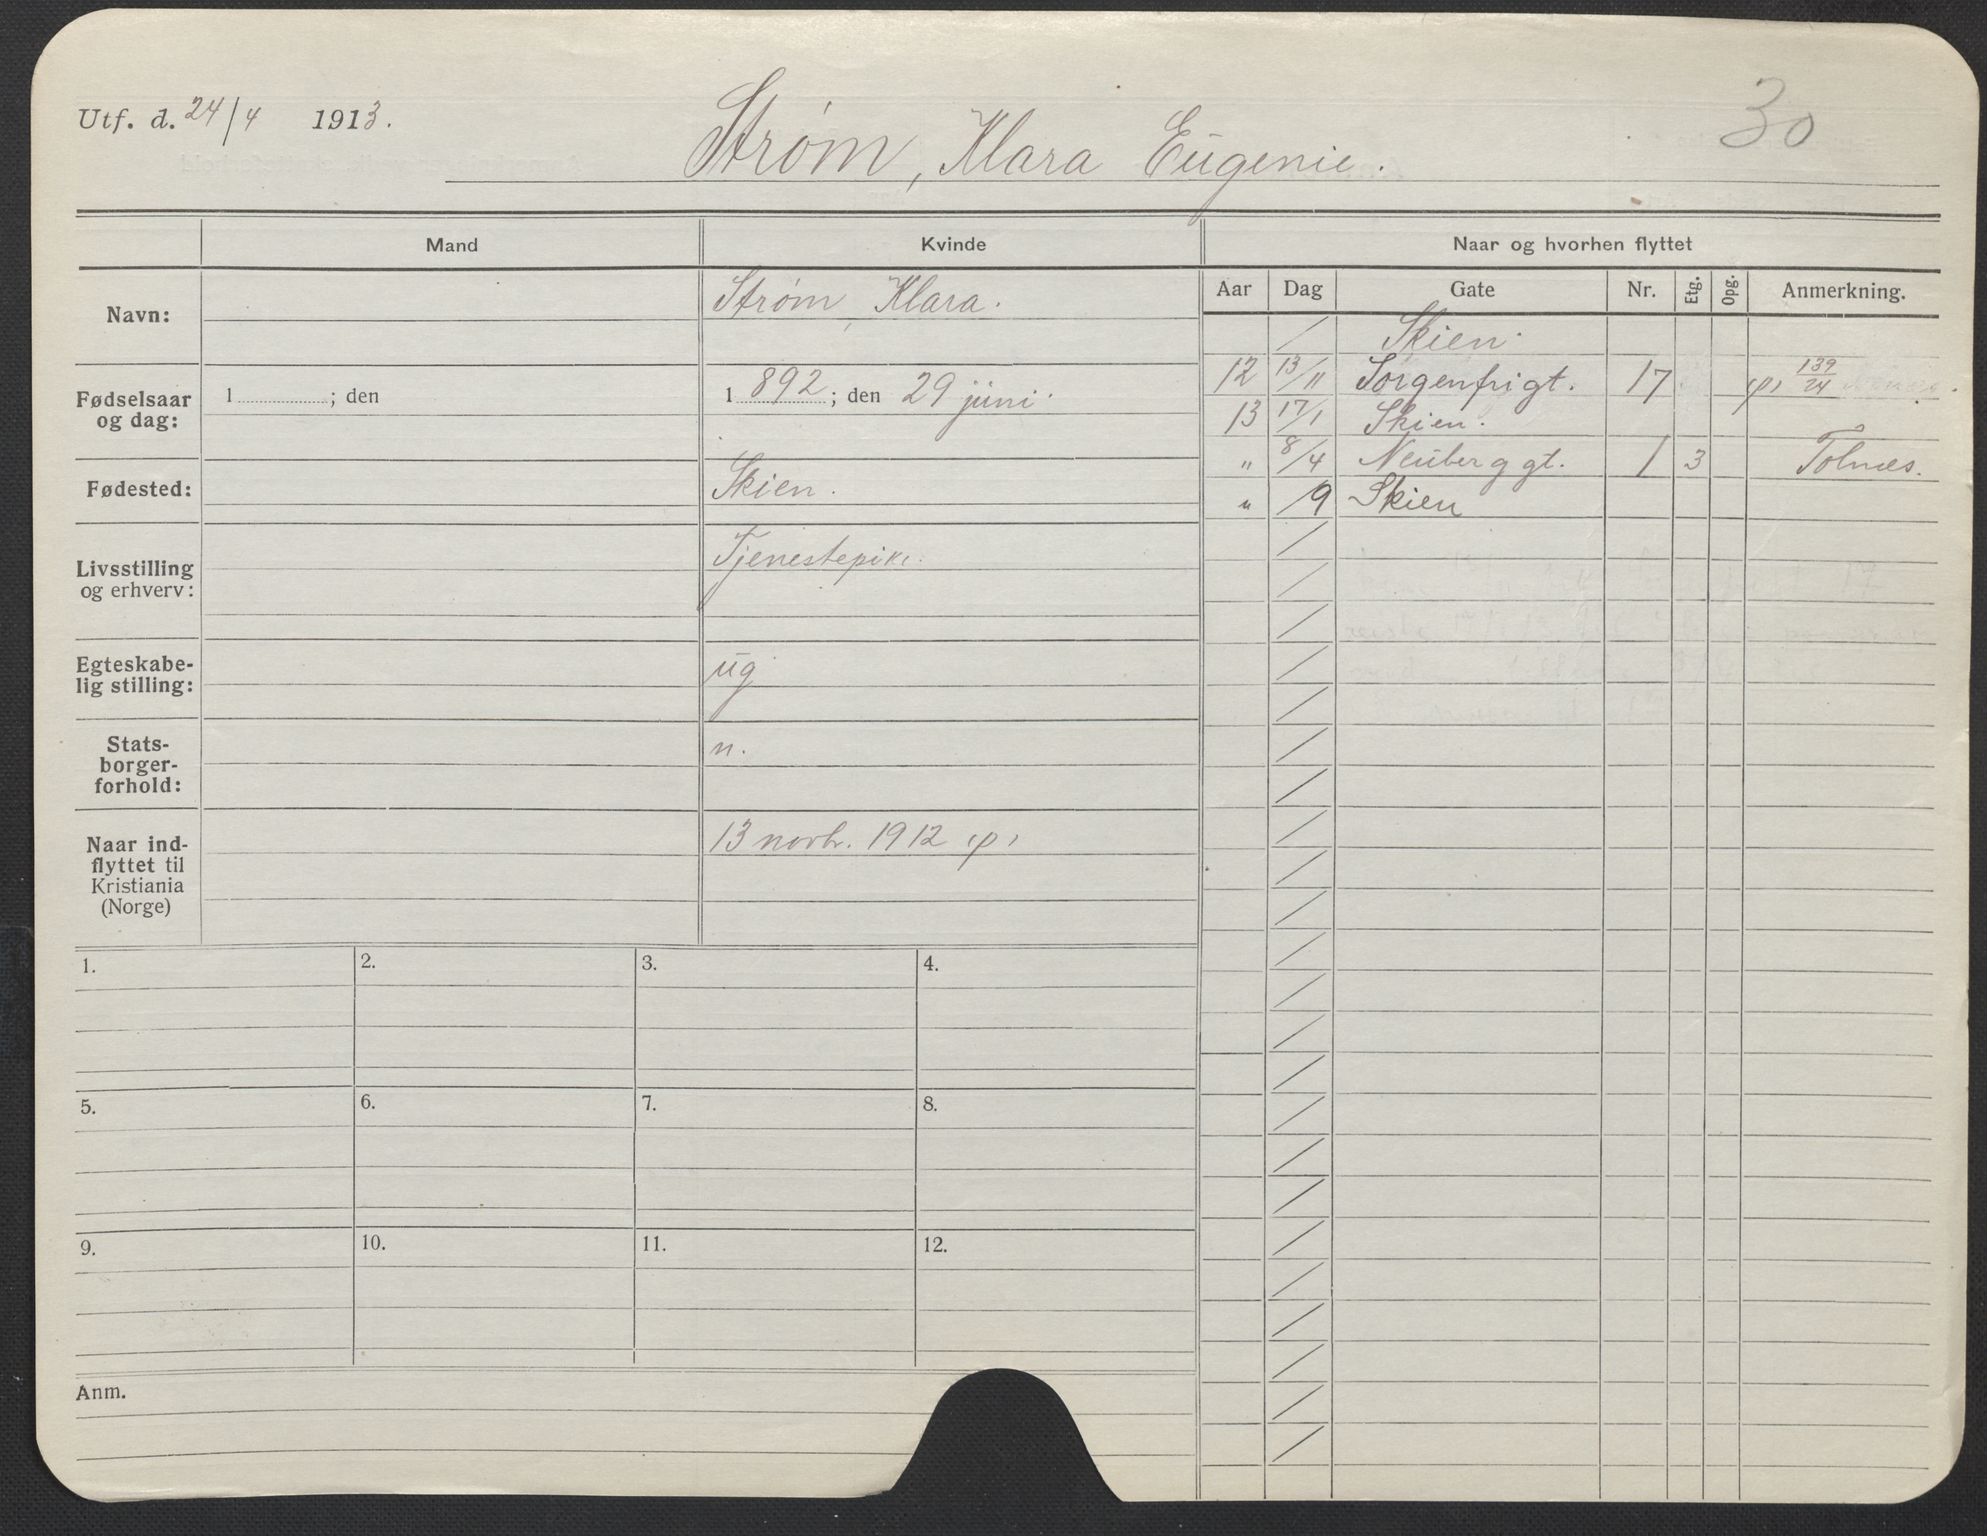 Utf. d. 24/4 1913.
Strøm, Klara Eugenie.
30
Mand
Kvinde
Naar og hvorhen flyttet
Navn:
Strøm, Klara.
Fødselsaar og dag:
1 ; den
1 892 ; den 29 juni.
Fødested:
Skien.
Livsstilling og erhverv:
Tjenestepike.
Egteskabe-
lig stilling:
ug
Stats-
borger-
forhold:
n.
Naar ind-
flyttet til
Kristiania
(Norge)
13 novbr. 1912 p,
Aar Dag Gate Nr. Etg. Opg. Anmerkning.
/ Skien.
12 13/11 Sorgenfrigt. 17 p, 139/24
13 17/1 Skien.
" 8/4 Neuberggt. 1 3 Tolnæs.
" /9 Skien
1. 2. 3. 4.
5. 6. 7. 8.
9. 10. 11. 12.
Anm.